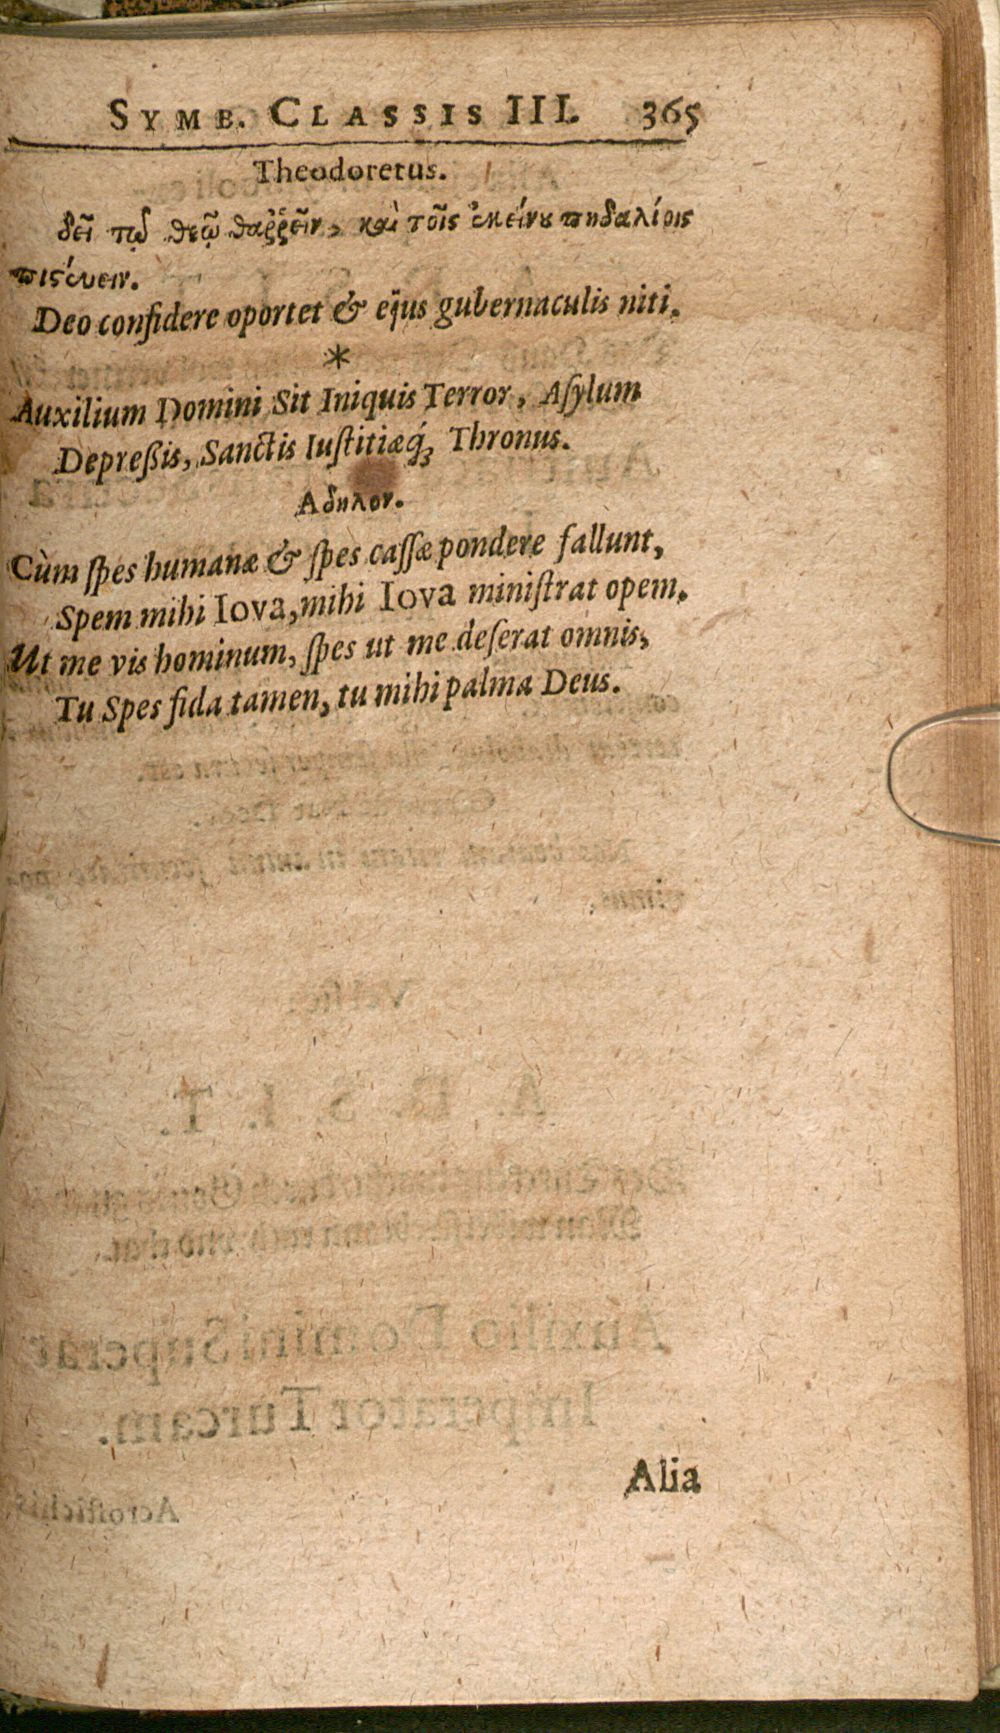 SYMB. CLASSIS III. 365
Theodoretus.
δεῖ τῷ θεῷ θαῤῥεῖν, καὶ τοῖς ἐκείνȣ πηδαλίοις
πιϛεύειν.
Deo confidere oportet & ejus gubernaculis niti.
*
Auxilium Domini Sit Iniquis Terror, Aſylum
Depreßis, Sanctis Iuſtitiæq́ꝫ Thronus.
Αδηλον.
Cùm ſpes humanæ & ſpes caſſæ pondere fallunt,
Spem mihi Iova, mihi Iova miniſtrat opem.
Ut me vis hominum, ſpes ut me deſerat omnis,
Tu Spes fida tamen, tu mihi palma Deus.
Alia